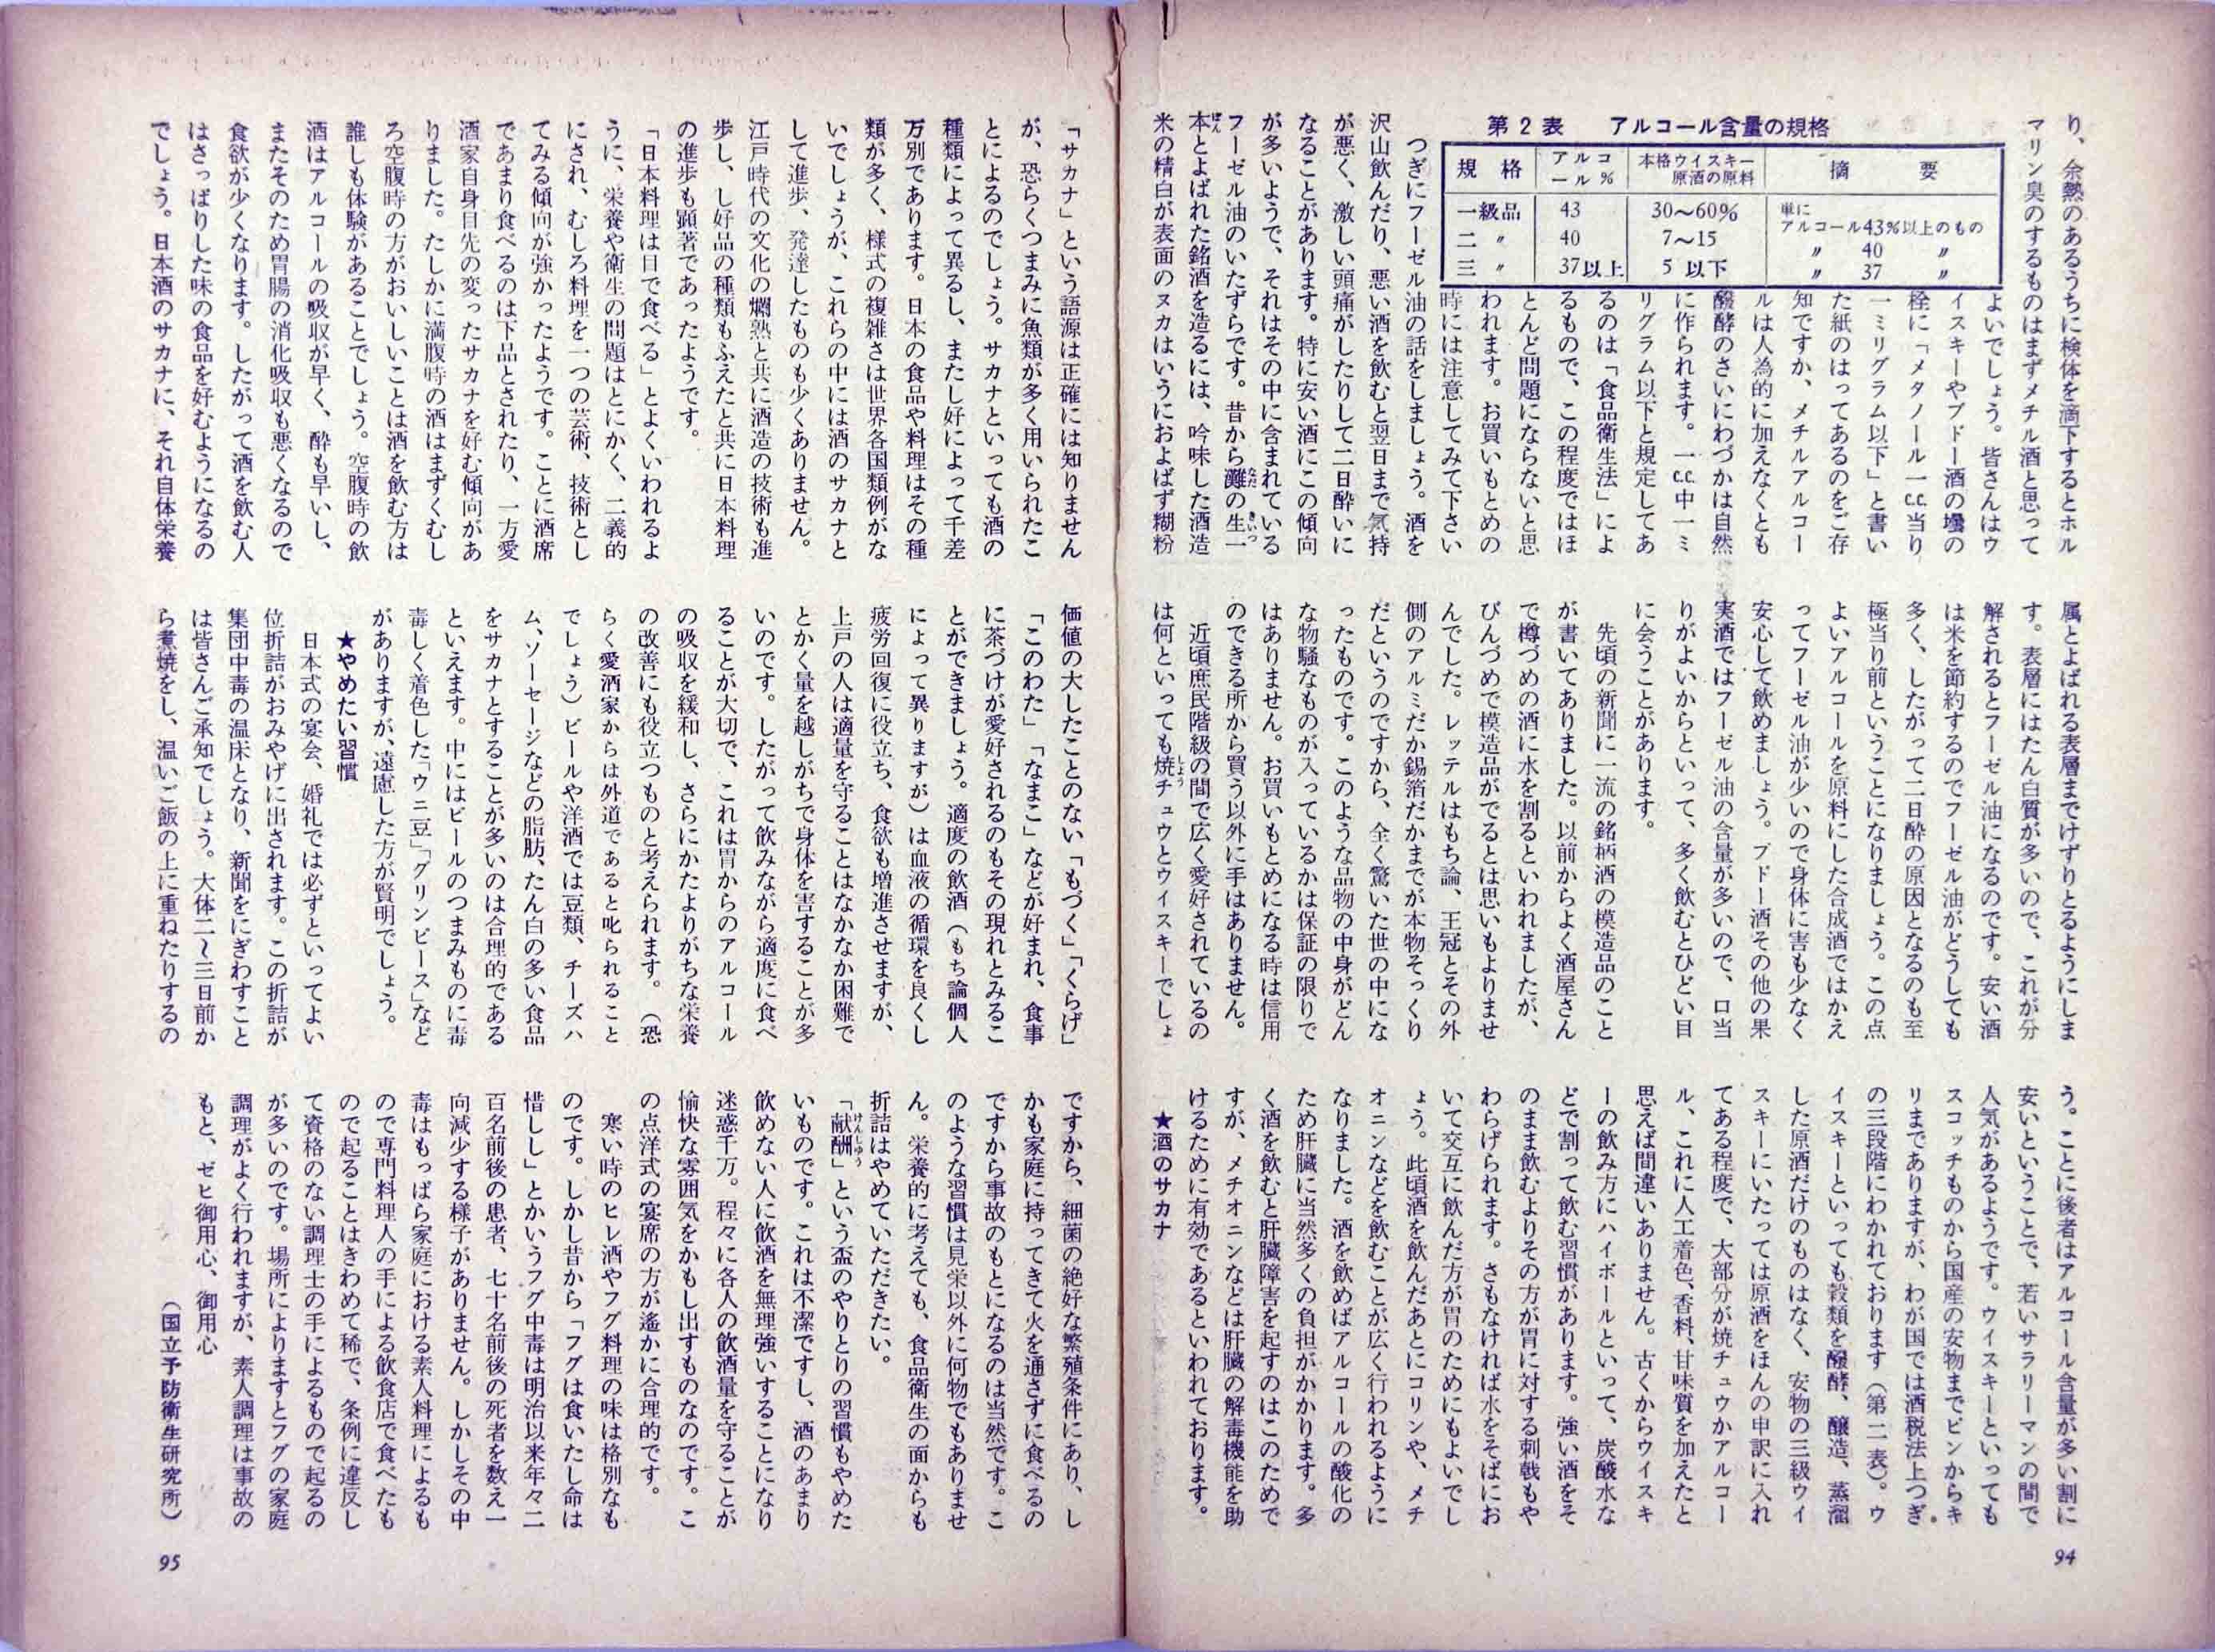 り、余熱のあるうちに検体を滴下するとホル
マリン臭のするものはまずメチル酒と思って
よいでしょう。皆さんはウ
イスキーやブドー酒の壜の
栓に「メタノール一cc当り
一ミリグラム以下」と書い
た紙のはってあるのをご存
知ですか、メチルアルコー
ルは人為的に加えなくとも
醱酵のさいにわづかは自然
に作られます。一cc中一ミ
リグラム以下と規定してあ
るのは「食品衛生法」によ
るもので、この程度ではほ
とんど問題にならないと思
われます。お買いもとめの
時には注意してみて下さい
第2表 アルコール含量の規格
規格 アルコール% 本格ウイスキー原酒の原料 摘要
一級品 43 30〜60% 単にアルコール43%以上のもの
二〃 40 7〜15 〃 40 〃
三〃 37以上 5以下 〃 37 〃
つぎにフーゼル油の話をしましょう。酒を
沢山飲んだり、悪い酒を飲むと翌日まで気持
が悪く、激しい頭痛がしたりして二日酔いに
なることがあります。特に安い酒にこの傾向
が多いようで、それはその中に含まれている
フーゼル油のいたずらです。昔から灘の生一
本とよばれた銘酒を造るには、吟味した酒造
米の精白が表面のヌカはいうにおよばず糊粉
属とよばれる表層までけずりとるようにしま
す。表層にはたん白質が多いので、これが分
解されるとフーゼル油になるのです。安い酒
は米を節約するのでフーゼル油がどうしても
多く、したがって二日酔の原因となるのも至
極当り前ということになりましょう。この点
よいアルコールを原料にした合成酒ではかえ
ってフーゼル油が少いので身体に害も少なく
安心して飲めましょう。ブドー酒その他の果
実酒ではフーゼル油の含量が多いので、口当
りがよいからといって、多く飲むとひどい目
に会うことがあります。
先頃の新聞に一流の銘柄酒の模造品のこと
が書いてありました。以前からよく酒屋さん
で樽づめの酒に水を割るといわれましたが、
びんづめで模造品がでるとは思いもよりませ
んでした。レッテルはもち論、王冠とその外
側のアルミだか錫箔だかまでが本物そっくり
だというのですから、全く驚いた世の中にな
ったものです。このような品物の中身がどん
な物騒なものが入っているかは保証の限りで
はありません。お買いもとめになる時は信用
のできる所から買う以外に手はありません。
近頃庶民階級の間で広く愛好されているの
は何といっても焼チュウとウイスキーでしょ
う。ことに後者はアルコール含量が多い割に
安いということで、若いサラリーマンの間で
人気があるようです。ウイスキーといっても
スコッチものから国産の安物までピンからキ
リまでありますが、わが国では酒税法上つぎ
の三段階にわかれております（第二表）。ウ
イスキーといっても穀類を醱酵、醸造、蒸溜
した原酒だけのものはなく、安物の三級ウイ
スキーにいたっては原酒をほんの申訳に入れ
てある程度で、大部分が焼チュウかアルコー
ル、これに人工着色、香料、甘味質を加えたと
思えば間違いありません。古くからウイスキ
ーの飲み方にハイボールといって、炭酸水な
どで割って飲む習慣があります。強い酒をそ
のまま飲むよりその方が胃に対する刺戟もや
わらげられます。さもなければ水をそばにお
いて交互に飲んだ方が胃のためにもよいでし
ょう。此頃酒を飲んだあとにコリンや、メチ
オニンなどを飲むことが広く行われるように
なりました。酒を飲めばアルコールの酸化の
ため肝臓に当然多くの負担がかかります。多
く酒を飲むと肝臓障害を起すのはこのためで
すが、メチオニンなどは肝臓の解毒機能を助
けるために有効であるといわれております。
★酒のサカナ
94
「サカナ」という語源は正確には知りません
が、恐らくつまみに魚類が多く用いられたこ
とによるのでしょう。サカナといっても酒の
種類によって異るし、またし好によって千差
万別であります。日本の食品や料理はその種
類が多く、様式の複雑さは世界各国類例がな
いでしょうが、これらの中には酒のサカナと
して進歩、発達したものも少くありません。
江戸時代の文化の爛熟と共に酒造の技術も進
歩し、し好品の種類もふえたと共に日本料理
の進歩も顕著であったようです。
「日本料理は目で食べる」とよくいわれるよ
うに、栄養や衛生の問題はとにかく、二義的
にされ、むしろ料理を一つの芸術、技術とし
てみる傾向が強かったようです。ことに酒席
であまり食べるのは下品とされたり、一方愛
酒家自身目先の変ったサカナを好む傾向があ
りました。たしかに満腹時の酒はまずくむし
ろ空腹時の方がおいしいことは酒を飲む方は
誰しも体験があることでしょう。空腹時の飲
酒はアルコールの吸収が早く、酔も早いし、
またそのため胃腸の消化吸収も悪くなるので
食欲が少くなります。したがって酒を飲む人
はさっぱりした味の食品を好むようになるの
でしょう。日本酒のサカナに、それ自体栄養
価値の大したことのない「もづく」「くらげ」
「このわた」「なまこ」などが好まれ、食事
に茶づけが愛好されるのもその現れとみるこ
とができましょう。適度の飲酒（もち論個人
によって異りますが）は血液の循環を良くし
疲労回復に役立ち、食欲も増進させますが、
上戸の人は適量を守ることはなかなか困難で
とかく量を越しがちで身体を害することが多
いのです。したがって飲みながら適度に食べ
ることが大切で、これは胃からのアルコール
の吸収を緩和し、さらにかたよりがちな栄養
の改善にも役立つものと考えられます。（恐
らく愛酒家からは外道であると叱られること
でしょう）ビールや洋酒では豆類、チーズハ
ム、ソーセージなどの脂肪、たん白の多い食品
をサカナとすることが多いのは合理的である
といえます。中にはビールのつまみものに毒
毒しく着色した「ウニ豆」「グリンピース」など
がありますが、遠慮した方が賢明でしょう。
★やめたい習慣
日本式の宴会、婚礼では必ずといってよい
位折詰がおみやげに出されます。この折詰が
集団中毒の温床となり、新聞をにぎわすこと
は皆さんご承知でしょう。大体二〜三日前か
ら煮焼をし、温いご飯の上に重ねたりするの
ですから、細菌の絶好な繁殖条件にあり、し
かも家庭に持ってきて火を通さずに食べるの
ですから事故のもとになるのは当然です。こ
のような習慣は見栄以外に何物でもありませ
ん。栄養的に考えても、食品衛生の面からも
折詰はやめていただきたい。
「献酬」という盃のやりとりの習慣もやめた
いものです。これは不潔ですし、酒のあまり
飲めない人に飲酒を無理強いすることになり
迷惑千万。程々に各人の飲酒量を守ることが
愉快な雰囲気をかもし出すものなのです。こ
の点洋式の宴席の方が遙かに合理的です。
寒い時のヒレ酒やフグ料理の味は格別なも
のです。しかし昔から「フグは食いたし命は
惜しし」とかいうフグ中毒は明治以来年々二
百名前後の患者、七十名前後の死者を数え一
向減少する様子がありません。しかしその中
毒はもっぱら家庭における素人料理によるも
ので専門料理人の手による飲食店で食べたも
ので起ることはきわめて稀で、条例に違反し
て資格のない調理士の手によるもので起るの
が多いのです。場所によりますとフグの家庭
調理がよく行われますが、素人調理は事故の
もと、ゼヒ御用心、御用心
（国立予防衛生研究所）
95